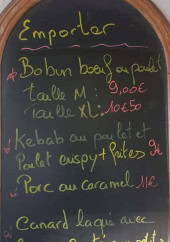 Emporter
Bobun bœuf ou poulet
Taille M : 9,00€
Taille XL : 10€50
Kebab au poulet et
Poulet crispy + frites 9€
Porc au caramel 11€
Canard laqué avec